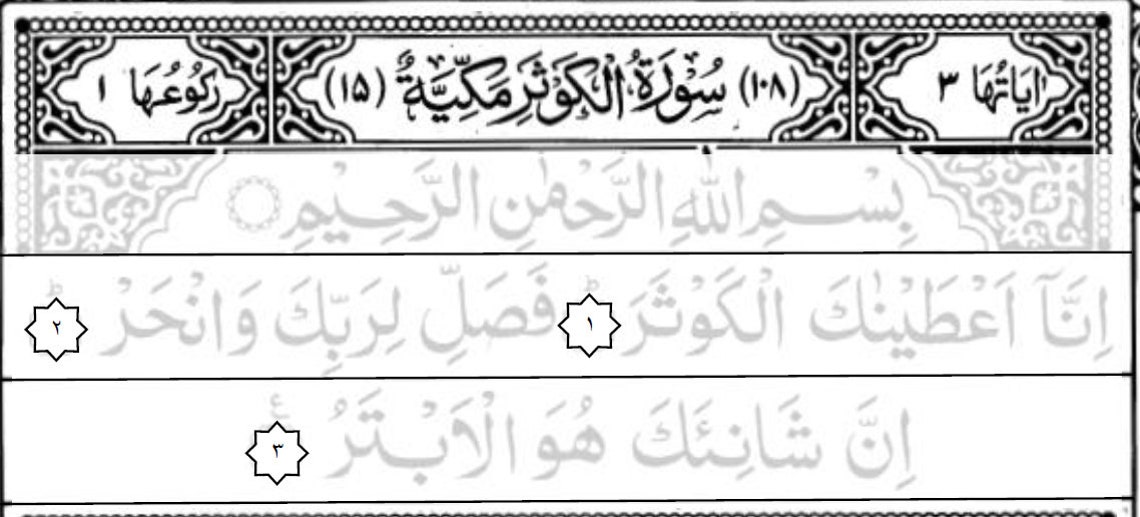 اٰيَاتُهَا ٣ (١٠٨) سُوْرَةُ الْكَوْثَرِ مَكِّيَّةٌ (١٥) رُكُوْعُهَا ١
بِسْمِ اللّٰهِ الرَّحْمٰنِ الرَّحِيْمِ
اِنَّاۤ اَعْطَيْنٰكَ الْكَوْثَرَ ؕ ١ فَصَلِّ لِرَبِّكَ وَانْحَرْ ؕ ٢
اِنَّ شَانِئَكَ هُوَ الْاَبْتَرُ ۠ ٣